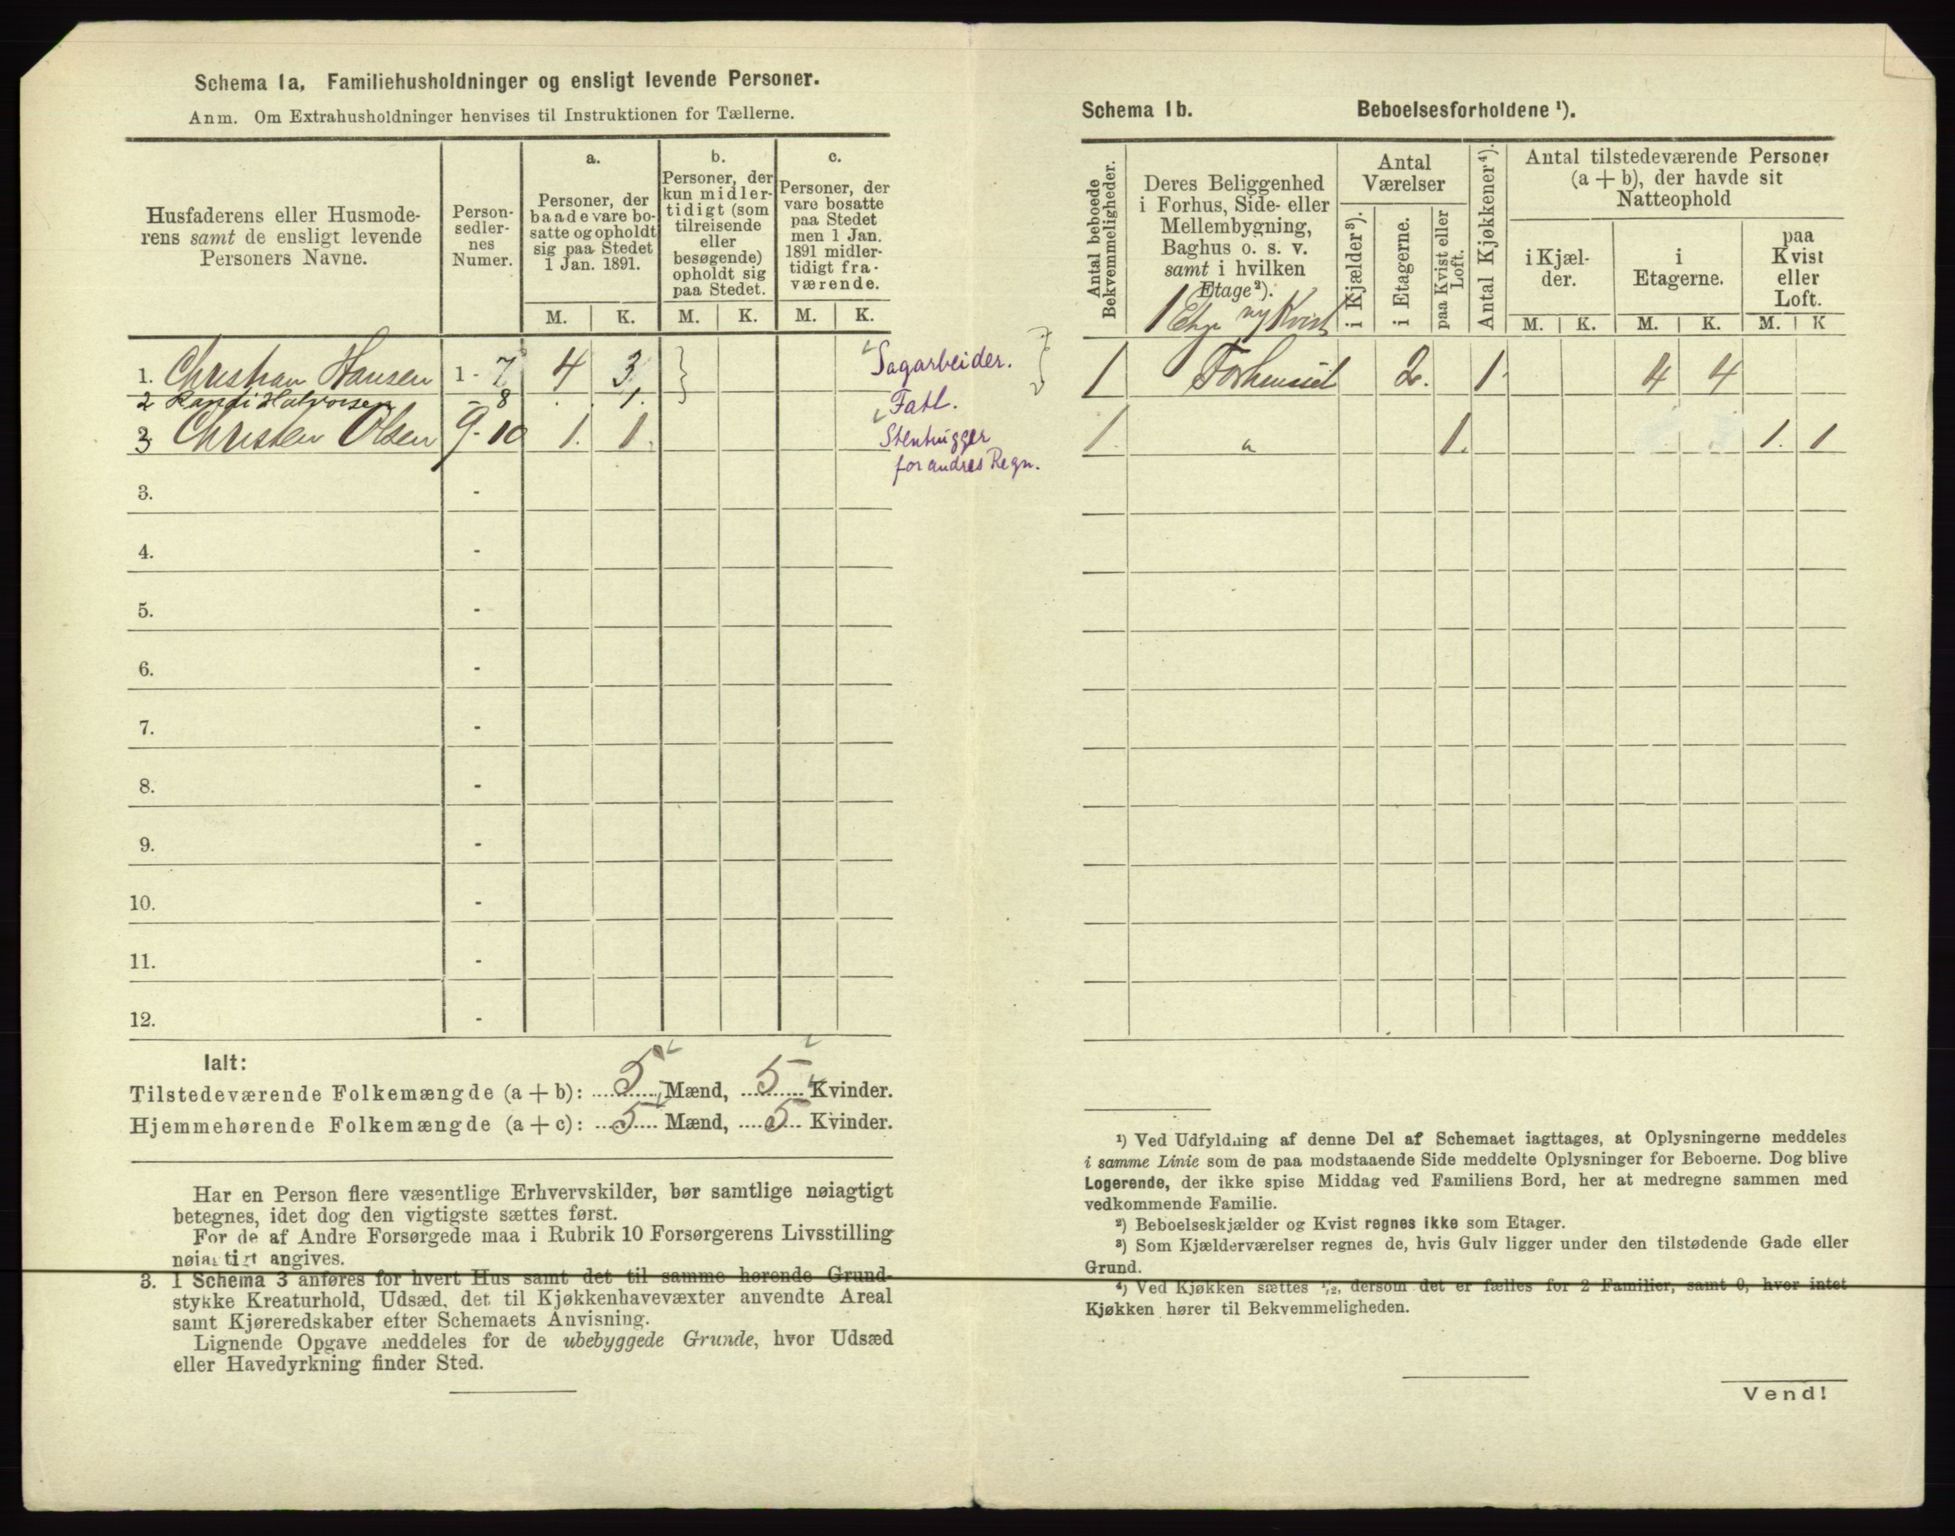 Schema 1a, Familiehusholdninger og ensligt levende Personer.
Anm. Om Extrahusholdninger henvises til Instruktionen for Tællerne.
Husfaderens eller Husmoderens samt de ensligt levende Personers Navne.
Personsedlernes Numer.
a.
Personer, der baade vare bosatte og opholdt sig paa Stedet 1 Jan. 1891.
b.
Personer, der kun midlertidigt (som tilreisende eller besøgende) opholdt sig paa Stedet.
c.
Personer, der vare bosatte paa Stedet men 1 Jan. 1891 midlertidigt fraværende.
M. K. M. K. M. K.
1. Christian Hansen 1 - 7 4 3 Sagarbeider.
2 Randi Halvorsen - 8 . 1. Fatl.
3 Christen Olsen 9 - 10 1. 1. Stenhugger
for andres Regn.
3. -
4. -
5. -
6. -
7. -
8. -
9. -
10. -
11. -
12. -
Ialt:
Tilstedeværende Folkemængde (a + b): 5 Mænd, 5 Kvinder.
Hjemmehørende Folkemængde (a + c): 5 Mænd, 5 Kvinder.
Har en Person flere væsentlige Erhvervskilder, bør samtlige nøiagtigt
betegnes, idet dog den vigtigste sættes først.
For de af Andre Forsørgede maa i Rubrik 10 Forsørgerens Livsstilling
nøiagtigt angives.
3. I Schema 3 anføres for hvert Hus samt det til samme hørende Grund-
stykke Kreaturhold, Udsæd, det til Kjøkkenhavevæxter anvendte Areal
samt Kjøreredskaber efter Schemaets Anvisning.
Lignende Opgave meddeles for de ubebyggede Grunde, hvor Udsæd
eller Havedyrkning finder Sted.
Schema 1b. Beboelsesforholdene ¹).
Antal beboede Bekvemmeligheder.
Deres Beliggenhed i Forhus, Side- eller Mellembygning, Baghus o. s. v. samt i hvilken Etage²).
1 Etge og Kvist
Antal Værelser
i Kjælder³).
i Etagerne.
paa Kvist eller Loft.
Antal Kjøkkener⁴).
Antal tilstedeværende Personer (a + b), der havde sit Natteophold
i Kjælder.
i Etagerne.
paa Kvist eller Loft.
M. K. M. K. M. K
1 Forhuset 2. 1. 4 4
1. " 1. 1. 1
¹) Ved Udfyldning af denne Del af Schemaet iagttages, at Oplysningerne meddeles
i samme Linie som de paa modstaaende Side meddelte Oplysninger for Beboerne. Dog blive
Logerende, der ikke spise Middag ved Familiens Bord, her at medregne sammen med
vedkommende Familie.
²) Beboelseskjælder og Kvist regnes ikke som Etager.
³) Som Kjælderværelser regnes de, hvis Gulv ligger under den tilstødende Gade eller
Grund.
⁴) Ved Kjøkken sættes ¹/₂, dersom det er fælles for 2 Familier, samt 0, hvor intet
Kjøkken hører til Bekvemmeligheden.
Vend!